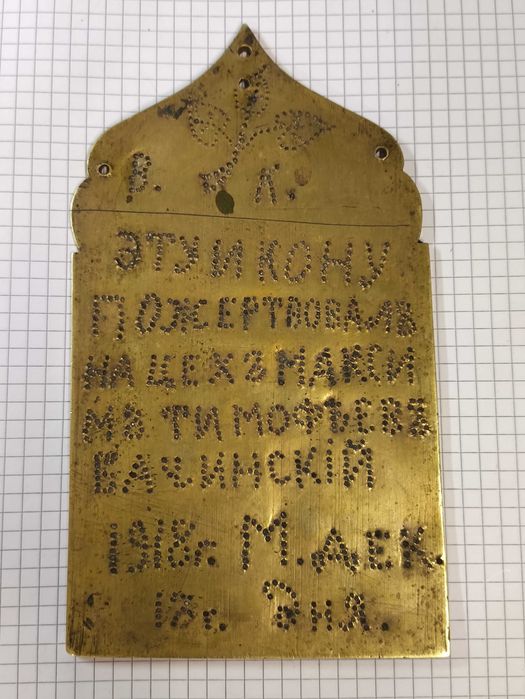 В. К.
ЭТУ ИКОНУ
ПОЖЕРТВОВАЛЪ
НА ЦЕХЪ МАКСИ
МА ТИМОФѢЕВЪ
ВАЧИНСКІЙ
1918г. М. ДЕК.
18г. Дня.